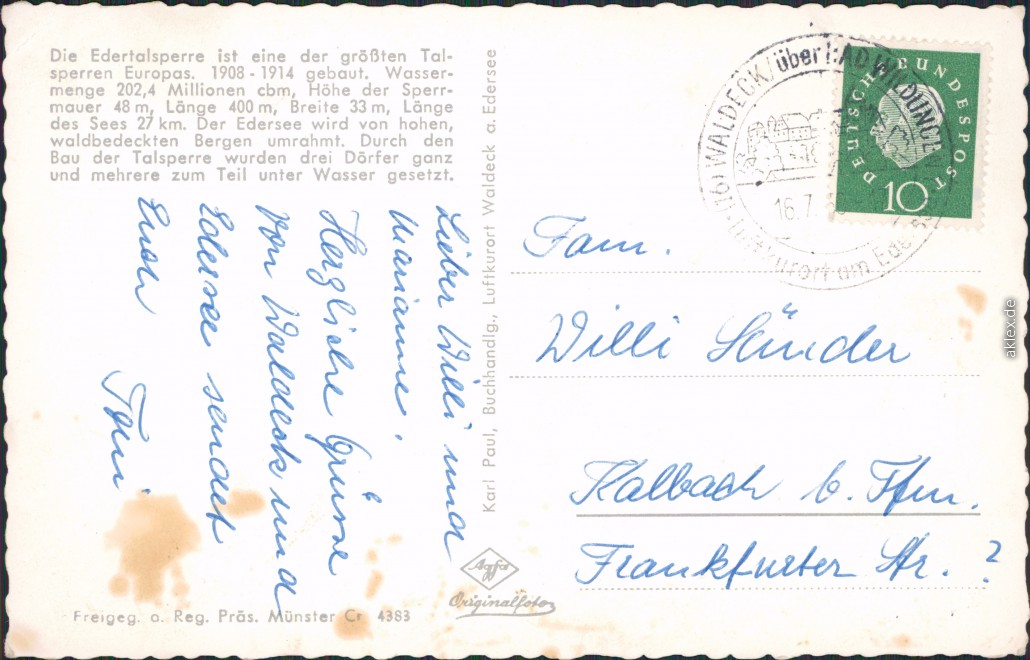 Die Edertalsperre ist eine der größten Tal-
sperren Europas. 1908 - 1914 gebaut. Wasser-
menge 202,4 Millionen cbm, Höhe der Sperr-
mauer 48 m, Länge 400 m, Breite 33 m, Länge
des Sees 27 km. Der Edersee wird von hohen,
waldbedeckten Bergen umrahmt. Durch den
Bau der Talsperre wurden drei Dörfer ganz
und mehrere zum Teil unter Wasser gesetzt.
Lieber Willi und
Marianne.
Herzliche Grüsse
von Waldeck und
Edersee sendet
Euch
Toni
Freigeg. o. Reg. Präs. Münster Cr. 4383
Karl Paul, Buchhandlg., Luftkurort Waldeck a. Edersee
Agfa
Originalfoto
(16) WALDECK / über BAD WILDUNGEN
16.7.
Luftkurort am Edersee
DEUTSCHE BUNDESPOST
10
Fam.
Willi Sünder
Kalbach b. Ffm.
Frankfurter Str. ?
aklex.de